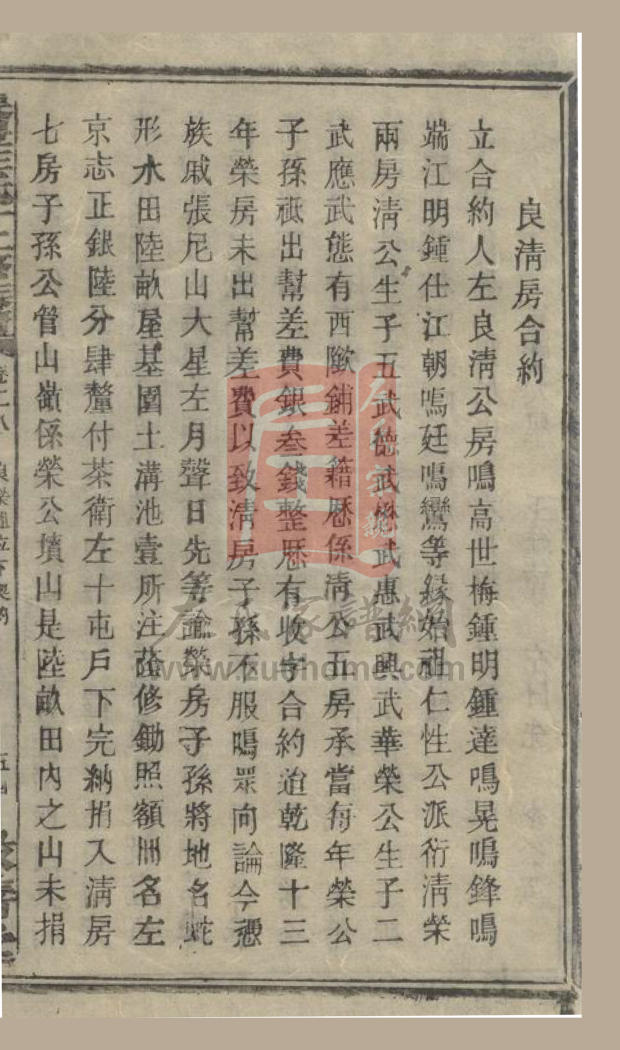 良淸房合約
立合約人左良淸公房鳴高世梅鍾明鍾達鳴晃鳴鋒鳴
端江明鍾仕江朝鳴廷鳴鸞等緣始祖仁性公派衍淸榮
兩房淸公生子五武德武係武惠武興武華榮公生子二
武應武態有西隞鋪差籍歷係淸公五房承當每年榮公
子孫祗出幫差費銀叁錢整歷有收字合約迨乾隆十三
年榮房未出幫差費以致淸房子孫不服鳴眾向論今憑
族戚張尼山大星左月聲日先等諭榮房子孫將地名蛇
形水田陸畝屋基園土溝池壹所注蔭修鋤照額冊名左
京志正銀陸分肆釐付茶衛左十屯戶下完納捐入淸房
七房子孫公管山嶺係榮公墳山是陸畝田內之山未捐
卷二八
左氏家譜網
www.zuohome.com